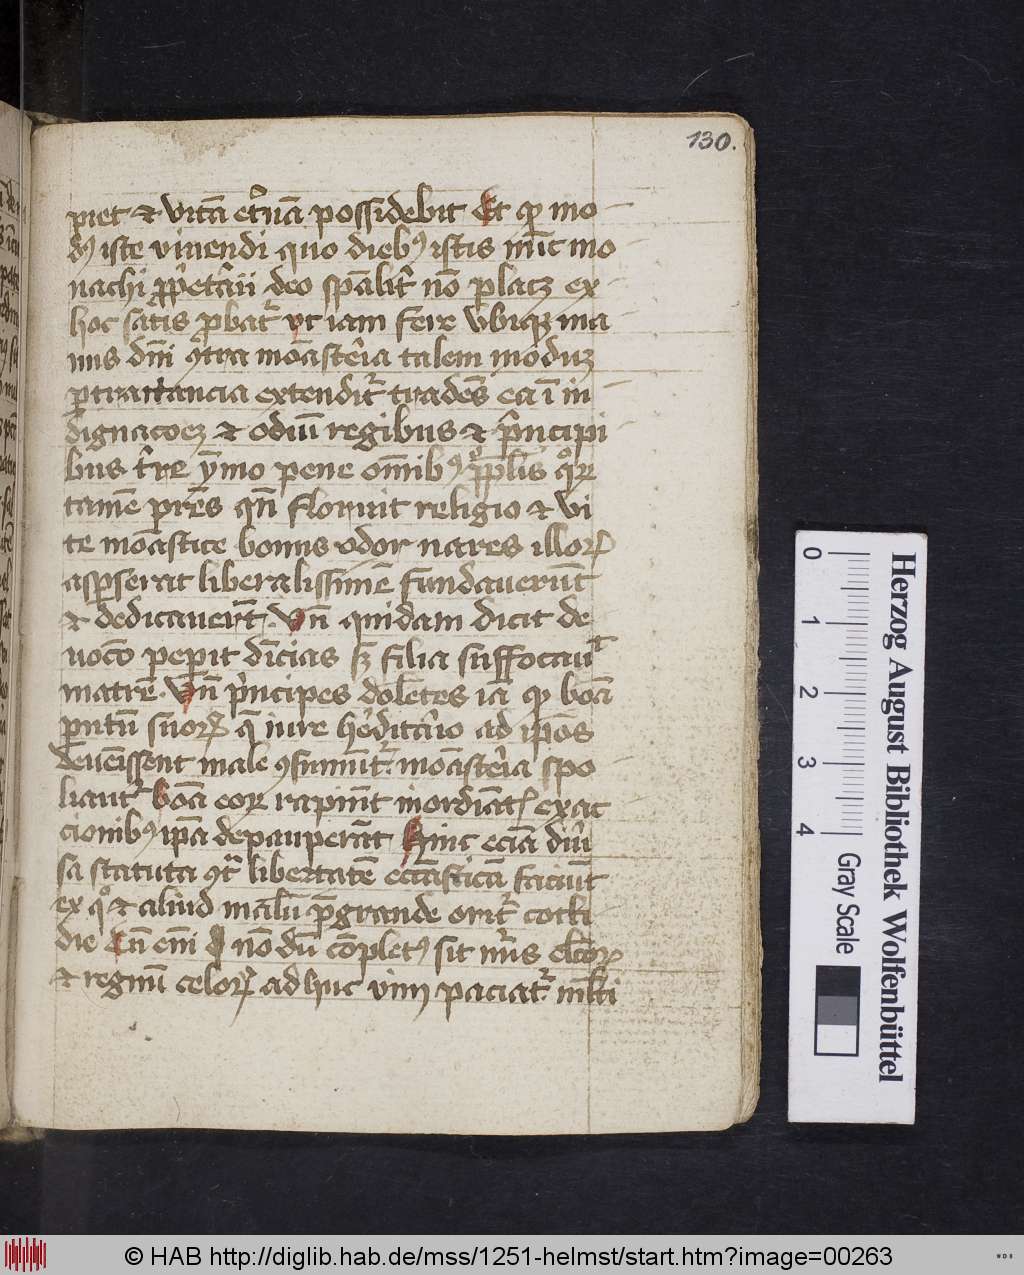 130.
piet et vitā et̄nā possidebit Et qꝫ mo
dꝰ iste viuendi quo diebꝰ istis mīc mo
nachi ꝓp̄etarii deo sp̄alit̄ nō placꝫ ex
hoc satis ꝓbat᷑ vt iam fere vbiqꝫ ma
nus dn̄i ꝯtra monasteria talem moduꝫ
ꝑtractancia extendit᷑ tradēs ea ī in
dignacōeꝫ et odiū regibus et p̄ncipi
bus t̄re ymo pene om̄ibꝰ pp̄lis qͦꝝ
tamē pr̄es qn̄ floruit religio et vi
te monastice bonus odor nares illoꝝ
aspserat liberalissime fundauerūt
et dedicauer̄t. Vn̄ quidam dicit de
uoco peperit diuicias sꝫ filia suffocau᷑
matrē. Vn̄ p̄ncipes dolētes iā qꝫ boā
pn̄tū suoꝝ q̄ iure h̓editario ad ipōs
deuenissent male ꝯsumūt᷑. monasteria spo
liant᷑ boā eoꝝ rapiūt inordinatꝭ exac
cionibꝰ ip̄a depauperāt Hinc eciā diu̓
sa statuta ꝯt̄ libertatē eccl̄asticā faciūt
ex qͦ et aliud malū p̄grande orit᷑ cotti
die Cū em̄ nō dū cōpletꝰ sit nūs el̄coꝝ
et regnū celoꝝ adhuc vim paciat᷑. ml̄ti
0
1
2
3
4
Gray Scale
Herzog August Bibliothek Wolfenbüttel
© HAB http://diglib.hab.de/mss/1251-helmst/start.htm?image=00263